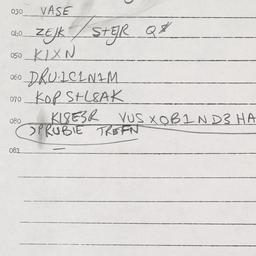 030 VASE
040 ZEJK / STEJR Q8
050 KIXN
060 DRU·1C1N1M
070 KOP STL8AK
080 KI8E3R VUS XOB1ND3 HA
PRUBIE TREFN
081 —